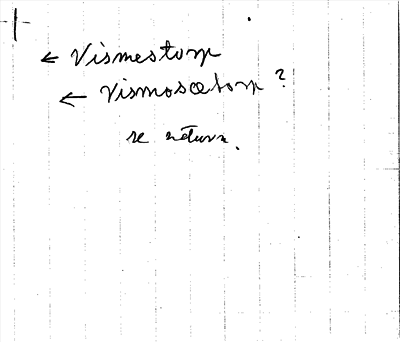 ← Vismestorp
← Vismosætorp ?
se return.